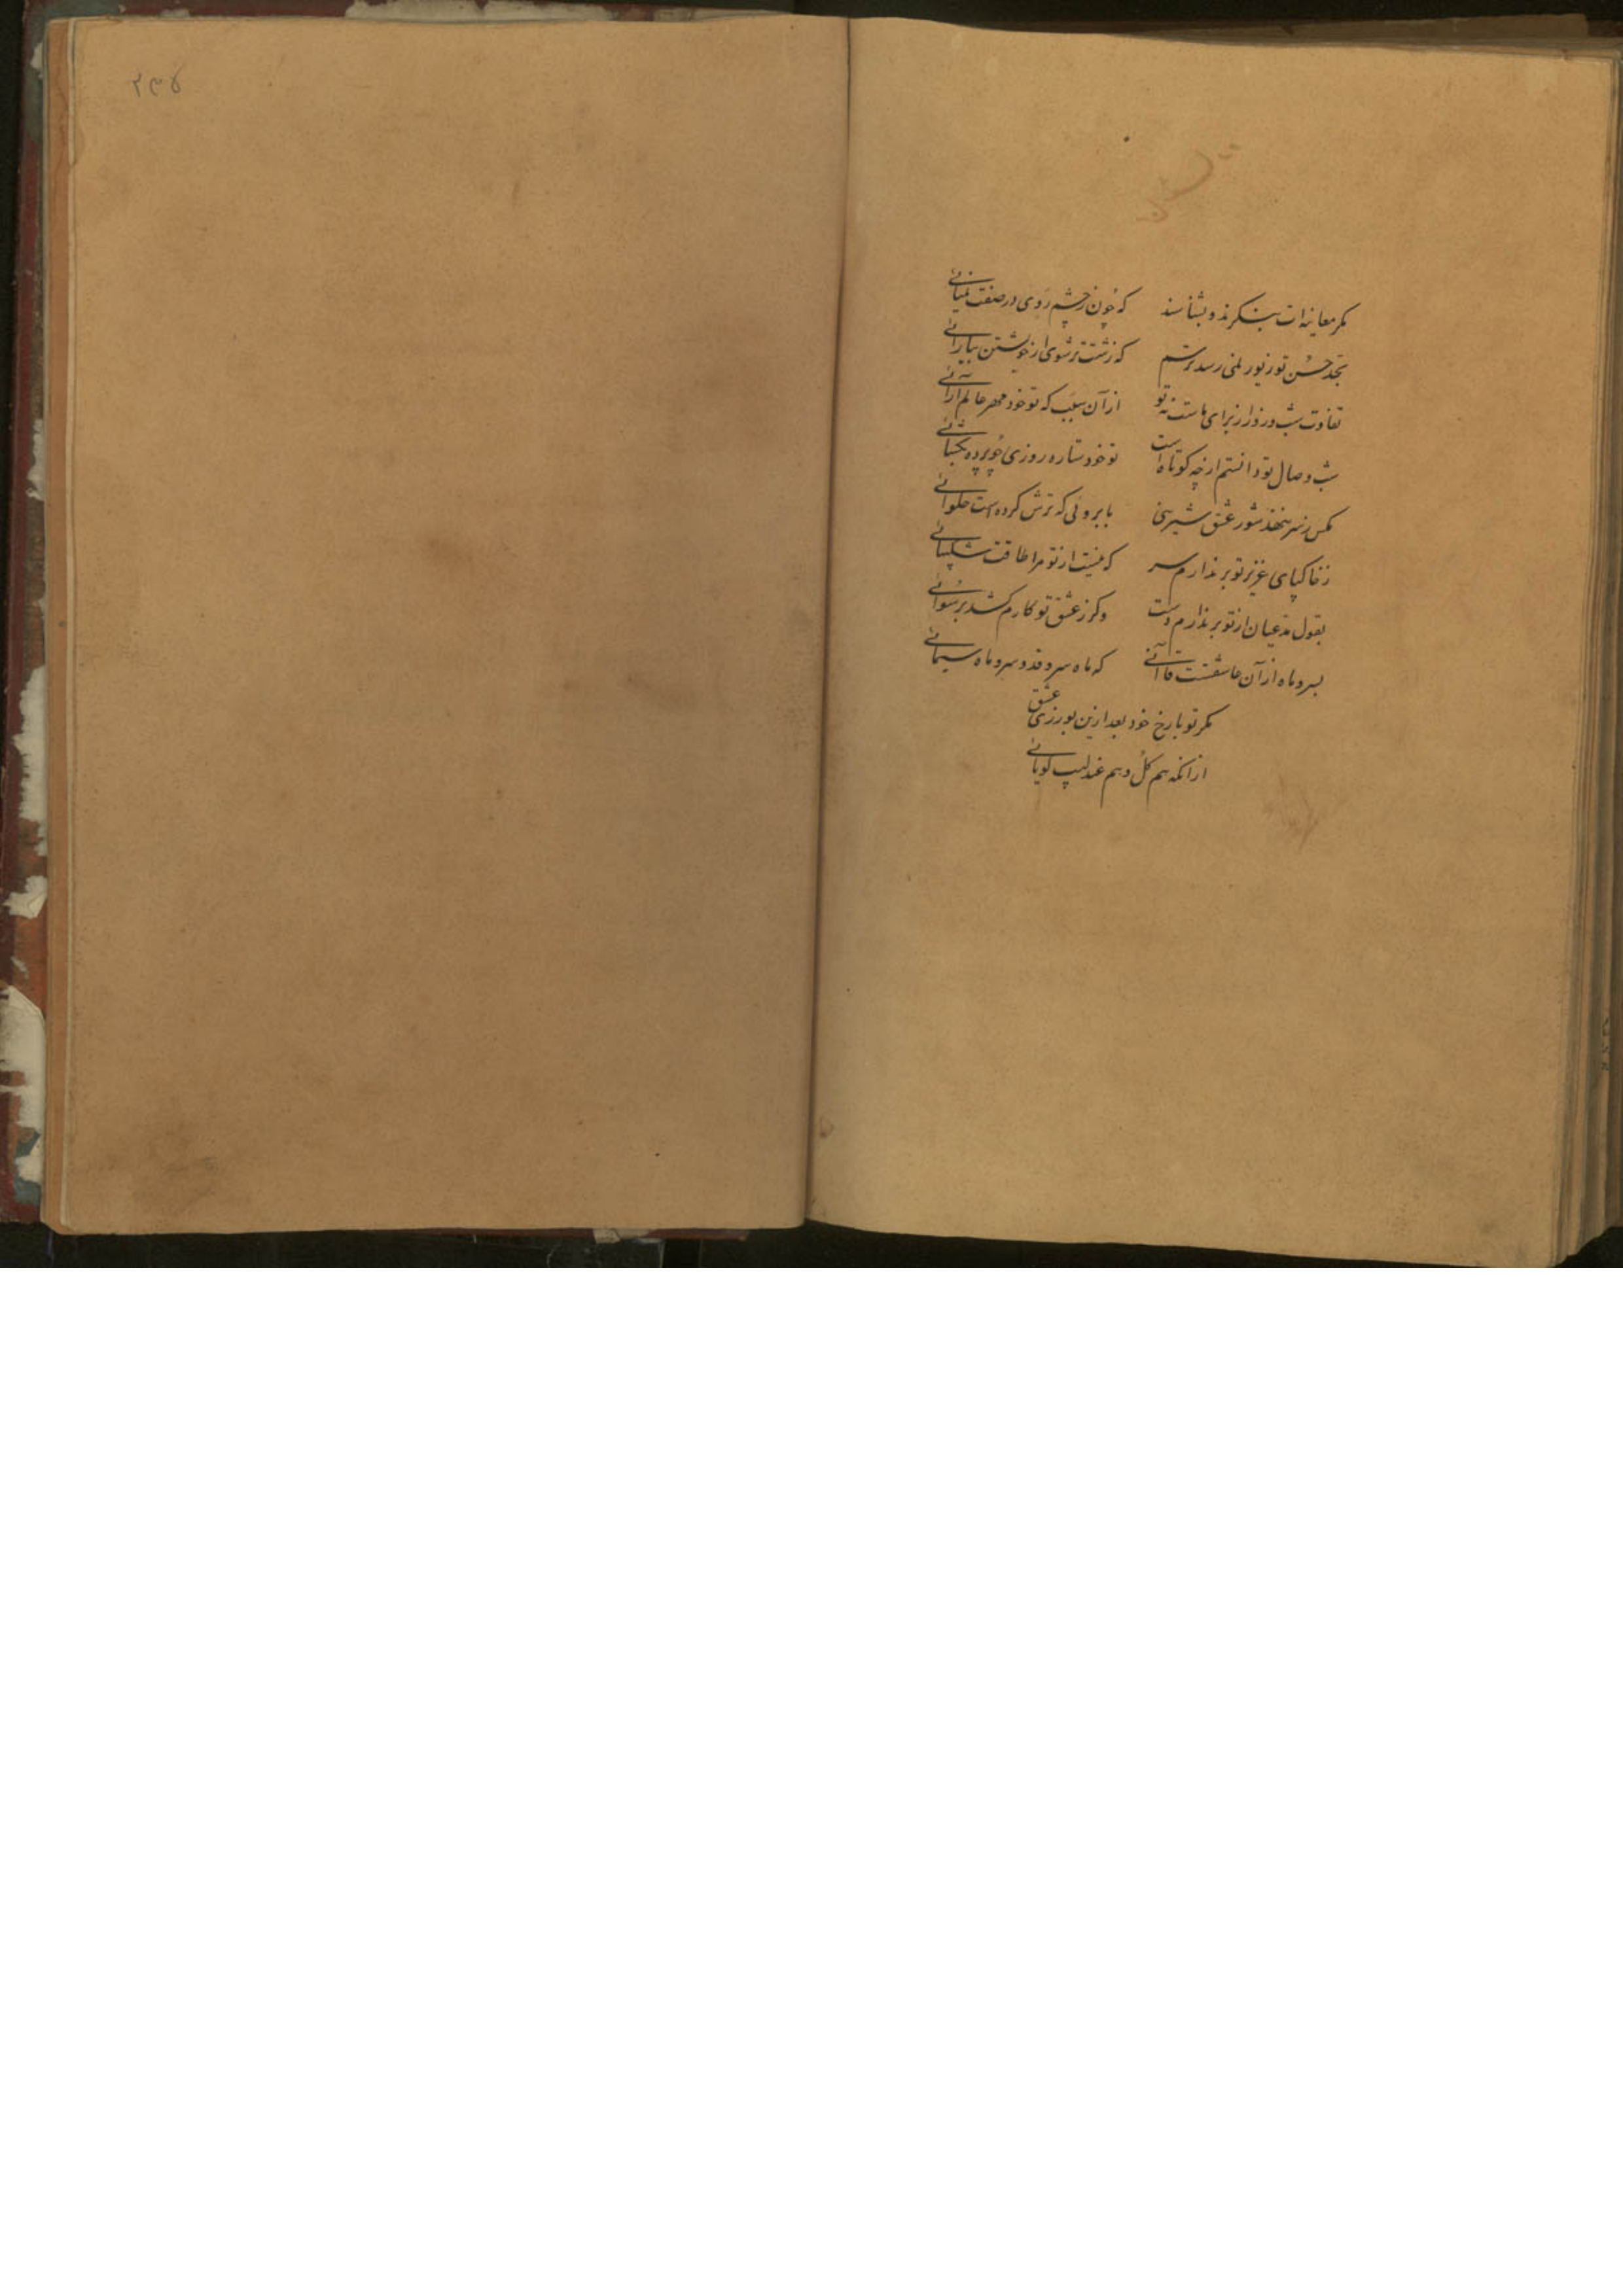 مکر معاینه‌ات بنکرند و بشناسند که چون ز چشم روی در صفت نمیائی
بحد حسن تو زیور نمی رسد ترسم که زشت‌تر شوی از خویشتن بیارائی
تفاوت شب و روز از برای ماست نه تو از آن سبب که تو خود مهر عالم آرائی
شب وصال تو دانستم از چه کوتاه است تو خود ستاره روزی چو پرده بکشائی
مکس ز سر ننهد شور عشق شیرینی بابروئی که ترش کرده است حلوائی
ز خاکپای عزیز تو بر ندارم سر که نیست از تو مرا طاقت شکیبائی
بقول مدعیان از تو بر ندارم دست وکر ز عشق تو کارم کشد برسوائی
بسرو ماه از آن عاشقست قاآنی که ماه سرو قد و سرو ماه سیمائی
مکر تو با رخ خود بعد ازین بورزی عشق
از آنکه هم کل و هم عندلیب کویائی